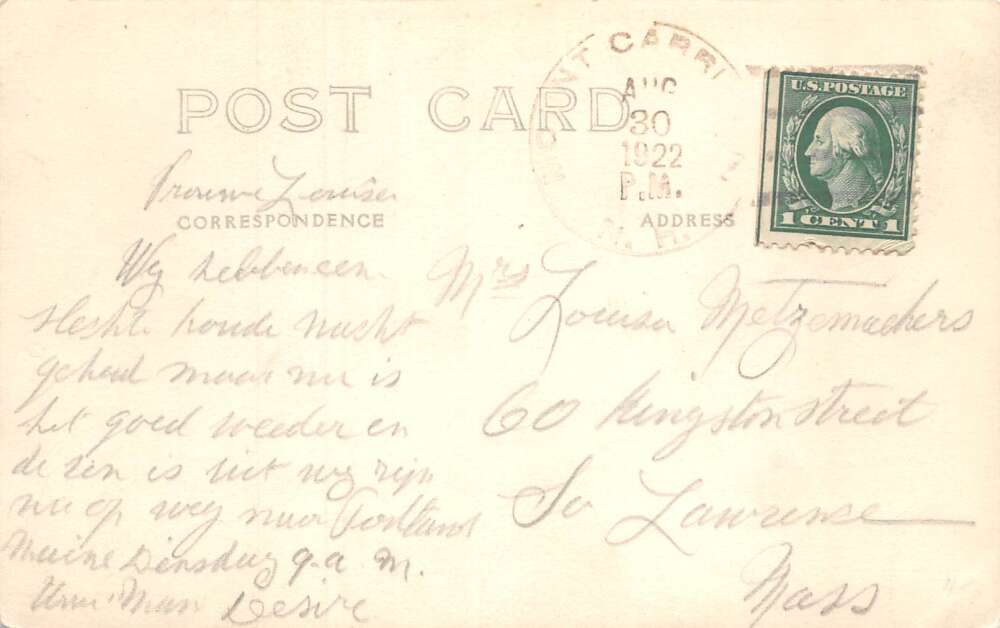 POST CARD
MOUNT CARRI
AUG
30
1922
P.M.
N. H.
U.S. POSTAGE
1 CENT 1
Vrouwe Louisa
CORRESPONDENCE
ADDRESS
Wy hebben een
slechte koude nacht
gehad maar nu is
het goed weeder en
de zen is uit wy zijn
nu op weg naar Portland
Maine Diensdag 9 a. M.
Uwe Man Desire
Mrs Louisa Metzemaekers
60 Kingston street
So Lawrence
Mass